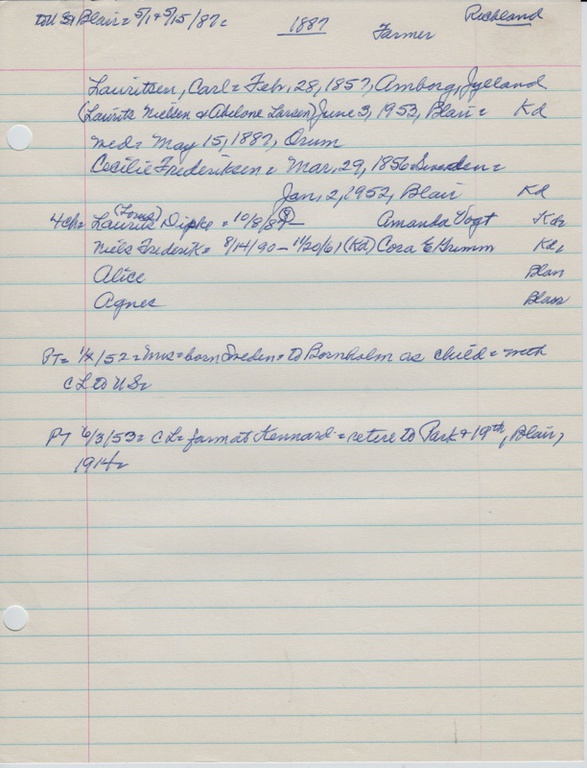 to US & Blair = 5/1 & 5/15/87 =
1887
Farmer
Richland
Lauritsen, Carl = Feb, 28, 1857, Amborg, Jylland
(Laurits Nielsen & Abelone Larsen) June 3, 1953, Blair = Kd
med = May 15, 1887, Orum
Cecilie Frederiksen = Mar, 29, 1856 = Sweden =
Jan, 2, 1952, Blair Kd
(Lores)
4ch = Laurits Dipke = 10/8/87 (8) – Amanda Vogt Kd =
Niels Frederik = 8/14/90 – 11/20/61 (Kd) Cora E Grimm Kd,
Alice Blair
Agnes Blair
PT = 1/4/52 = Mrs = born Sweden = to Bornholm as child = with
CL to US =
PT 6/3/53 = CL = farm at Kennard = retire to Park & 19th, Blair,
1914 =